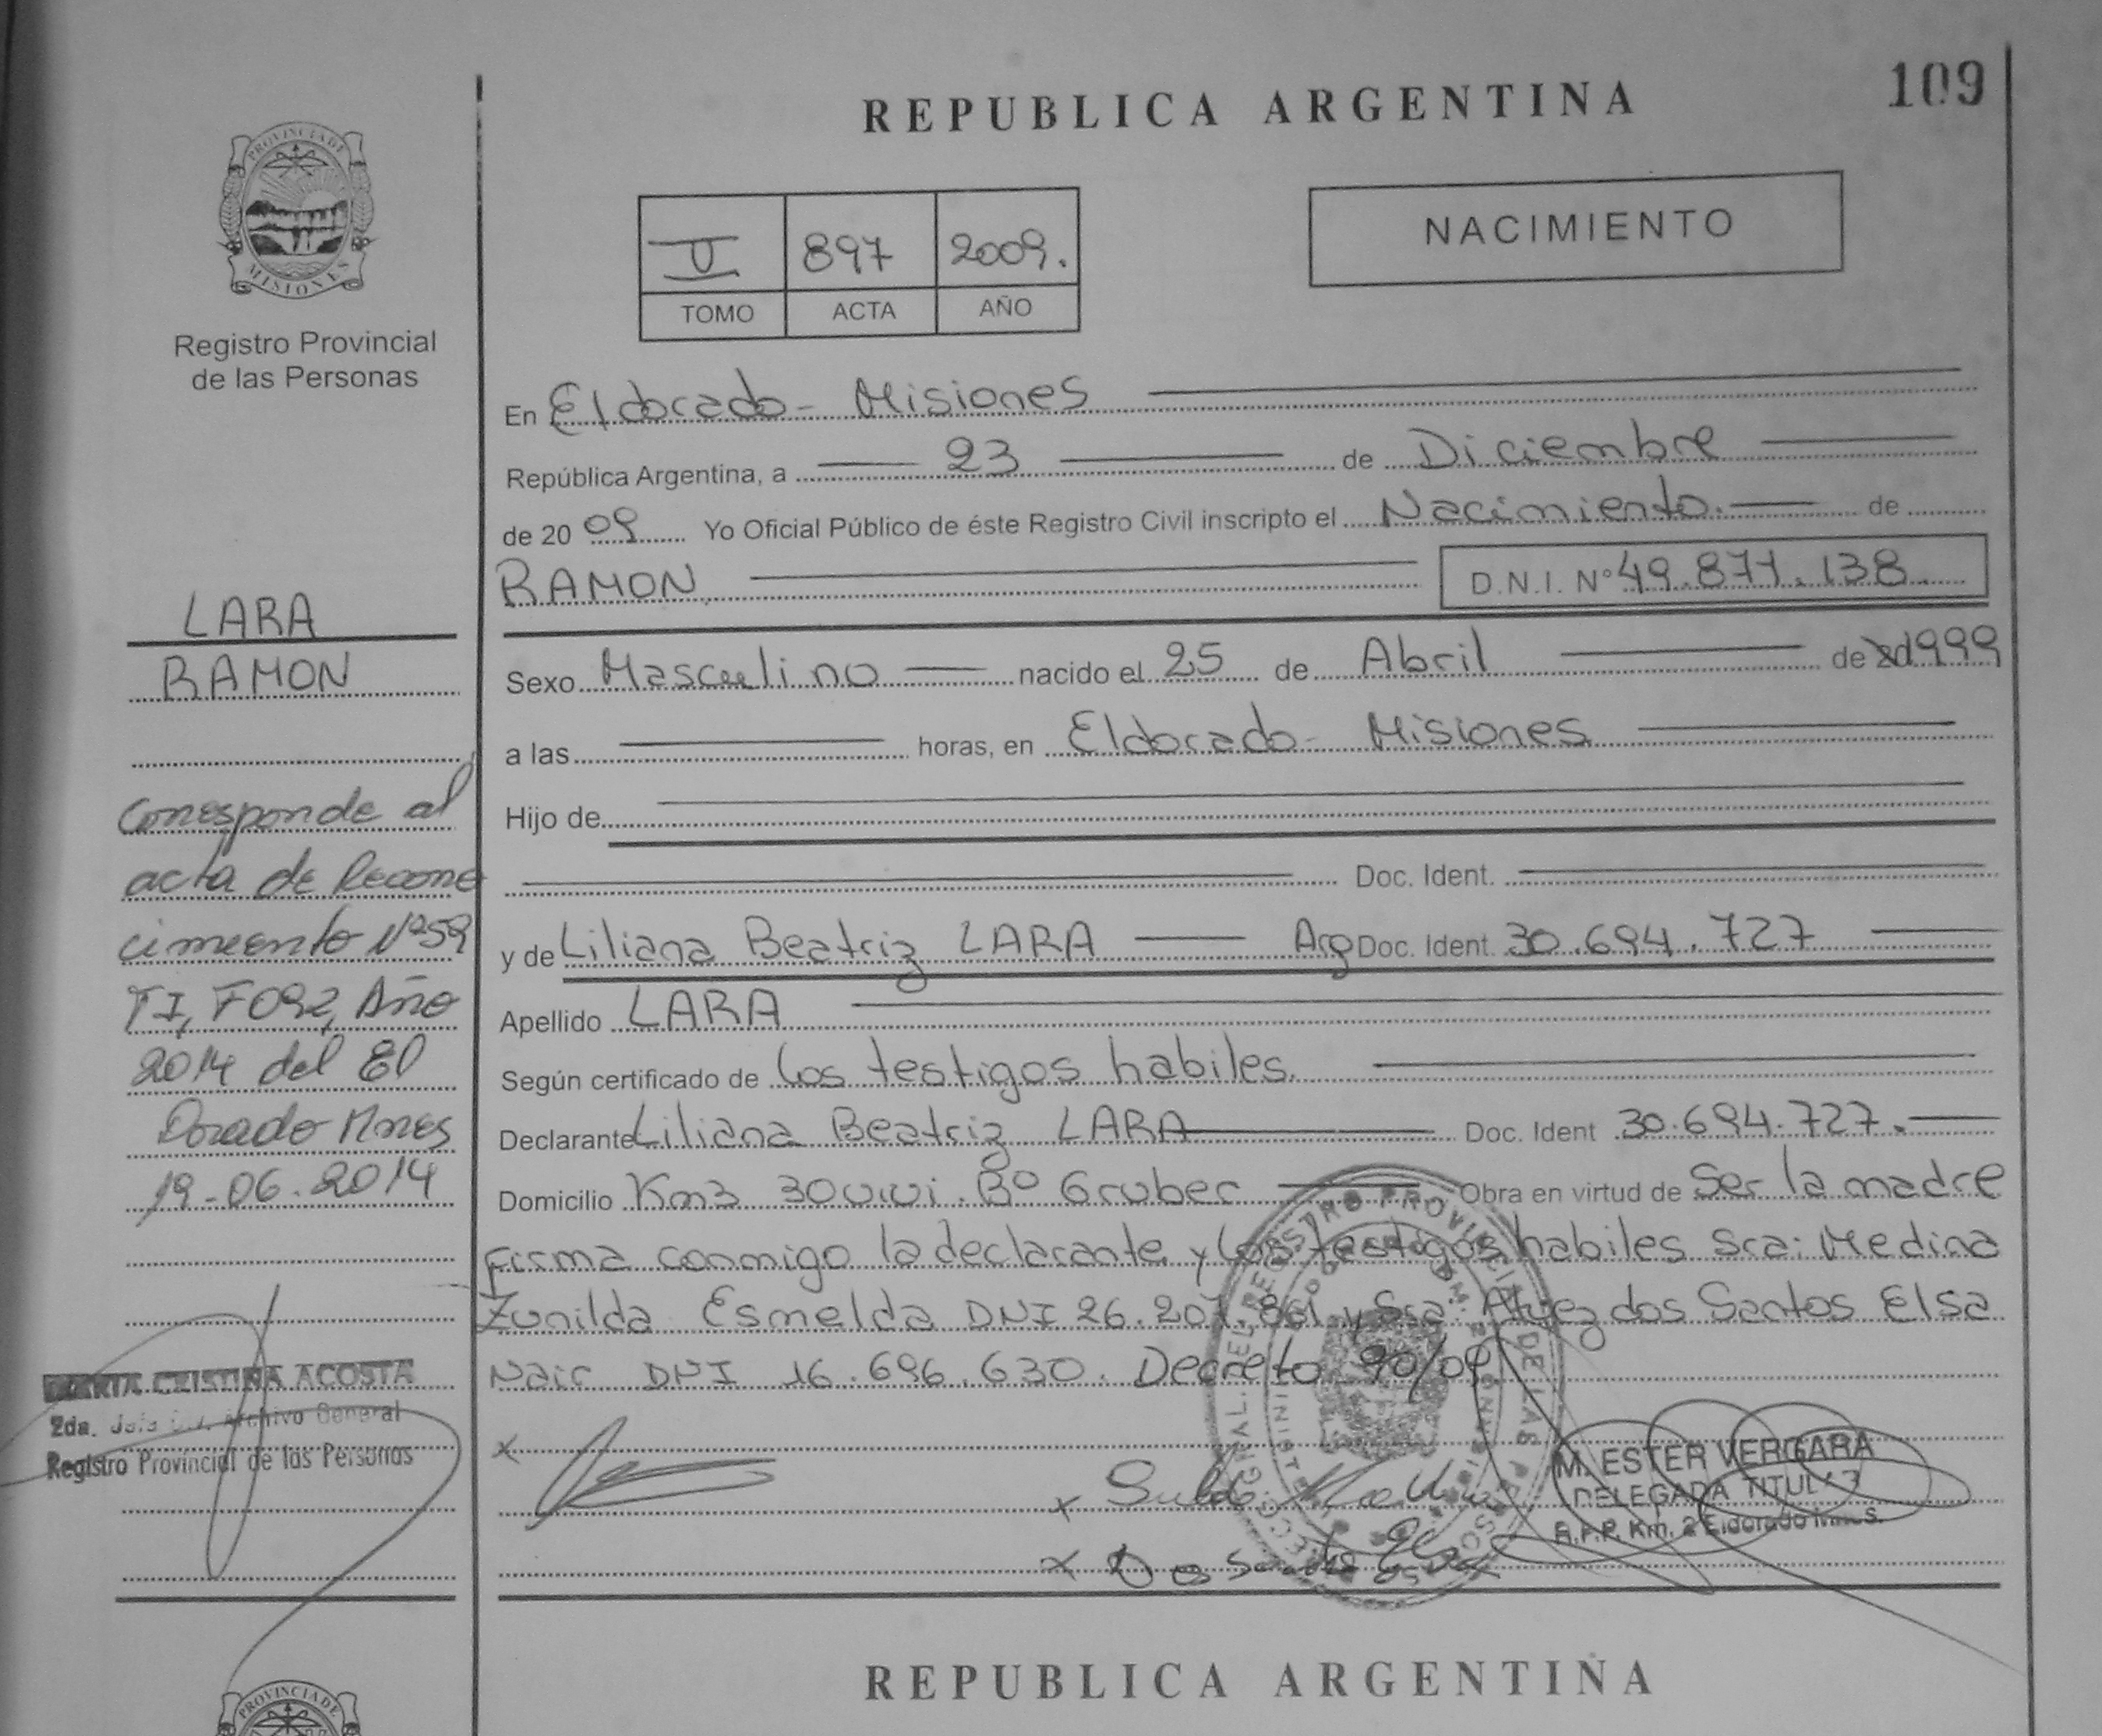 REPUBLICA ARGENTINA
109
PROVINCIA DE
MISIONES
Registro Provincial
de las Personas
NACIMIENTO
II 897 2009.
TOMO ACTA AÑO
En Eldorado - Misiones
República Argentina, a 23 de Diciembre
de 20 09 Yo Oficial Público de éste Registro Civil inscripto el Nacimiento. de
RAMON D.N.I. Nº 49.871.138
Sexo Masculino nacido el 25 de Abril de 1999
a las horas, en Eldorado - Misiones
Hijo de
Doc. Ident.
y de Liliana Beatriz LARA Arg Doc. Ident. 30.694.727
Apellido LARA
Según certificado de los testigos habiles.
Declarante Liliana Beatriz LARA Doc. Ident 30.694.727.
Domicilio Km3 Bº Gruber Obra en virtud de Ser la madre
firma conmigo la declarante y los testigos habiles Sra: Medina
Zunilda Esmelda DNI 26.207.861 y Sra: dos Santos Elsa
Nair DNI 16.696.630. Decreto 90/09
LARA
RAMON
Corresponde al
acta de Recono
cimiento Nº59
TI, F092, Año
2014 del El
Dorado Mnes
19-06.2014
MARIA CRISTINA ACOSTA
2da. Jefa Div. Archivo General
Registro Provincial de las Personas
M. ESTER VERGARA
DELEGADA TITULAR
R.P.P. Km. 2 Eldorado Mnes.
REPUBLICA ARGENTINA
PROVINCIA DE